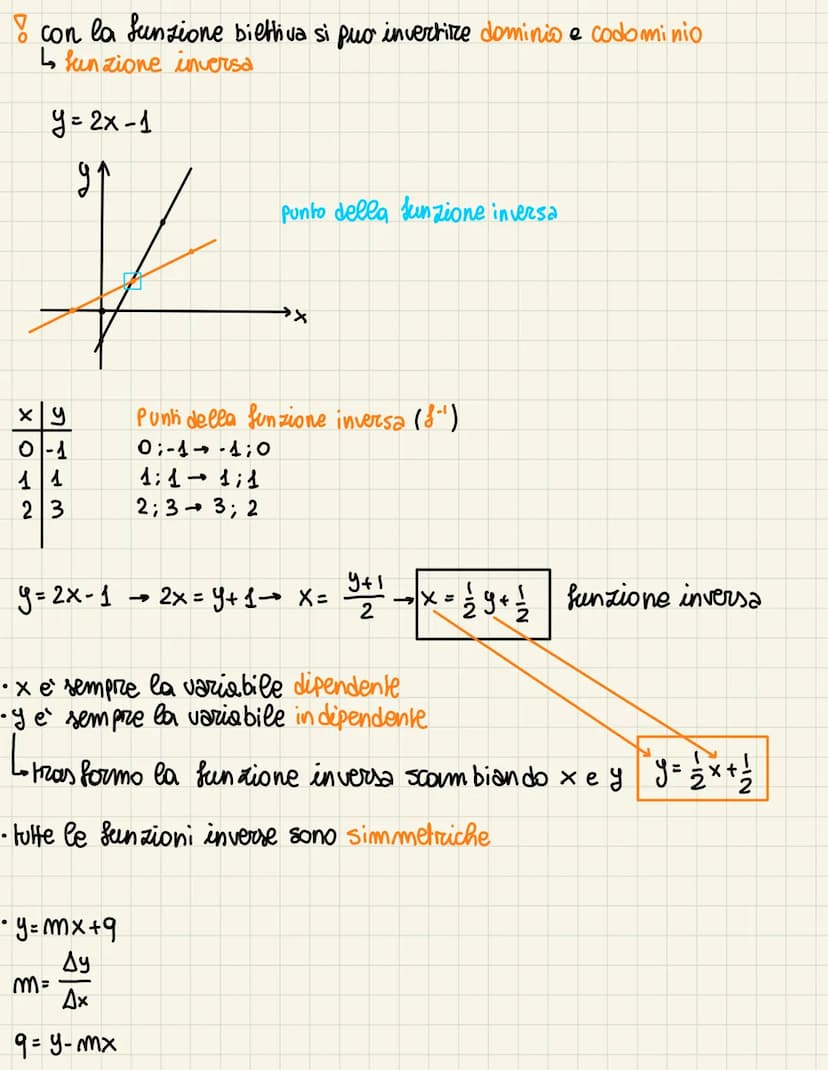 ! con la funzione biettiva si può invertire dominio e codominio
↳ funzione inversa
y = 2x - 1
y
punto della funzione inversa
x
x | y
Punti della funzione inversa (f⁻¹)
0 | -1
0; -1 → -1; 0
1 | 1
1; 1 → 1; 1
2 | 3
2; 3 → 3; 2
y = 2x - 1 → 2x = y + 1 → x = (y+1)/2 → x = 1/2 y + 1/2 funzione inversa
• x è sempre la variabile dipendente
• y è sempre la variabile indipendente
↳ trasformo la funzione inversa scambiando x e y y = 1/2 x + 1/2
• tutte le funzioni inverse sono simmetriche
• y = mx + q
m = Δy/Δx
q = y - mx